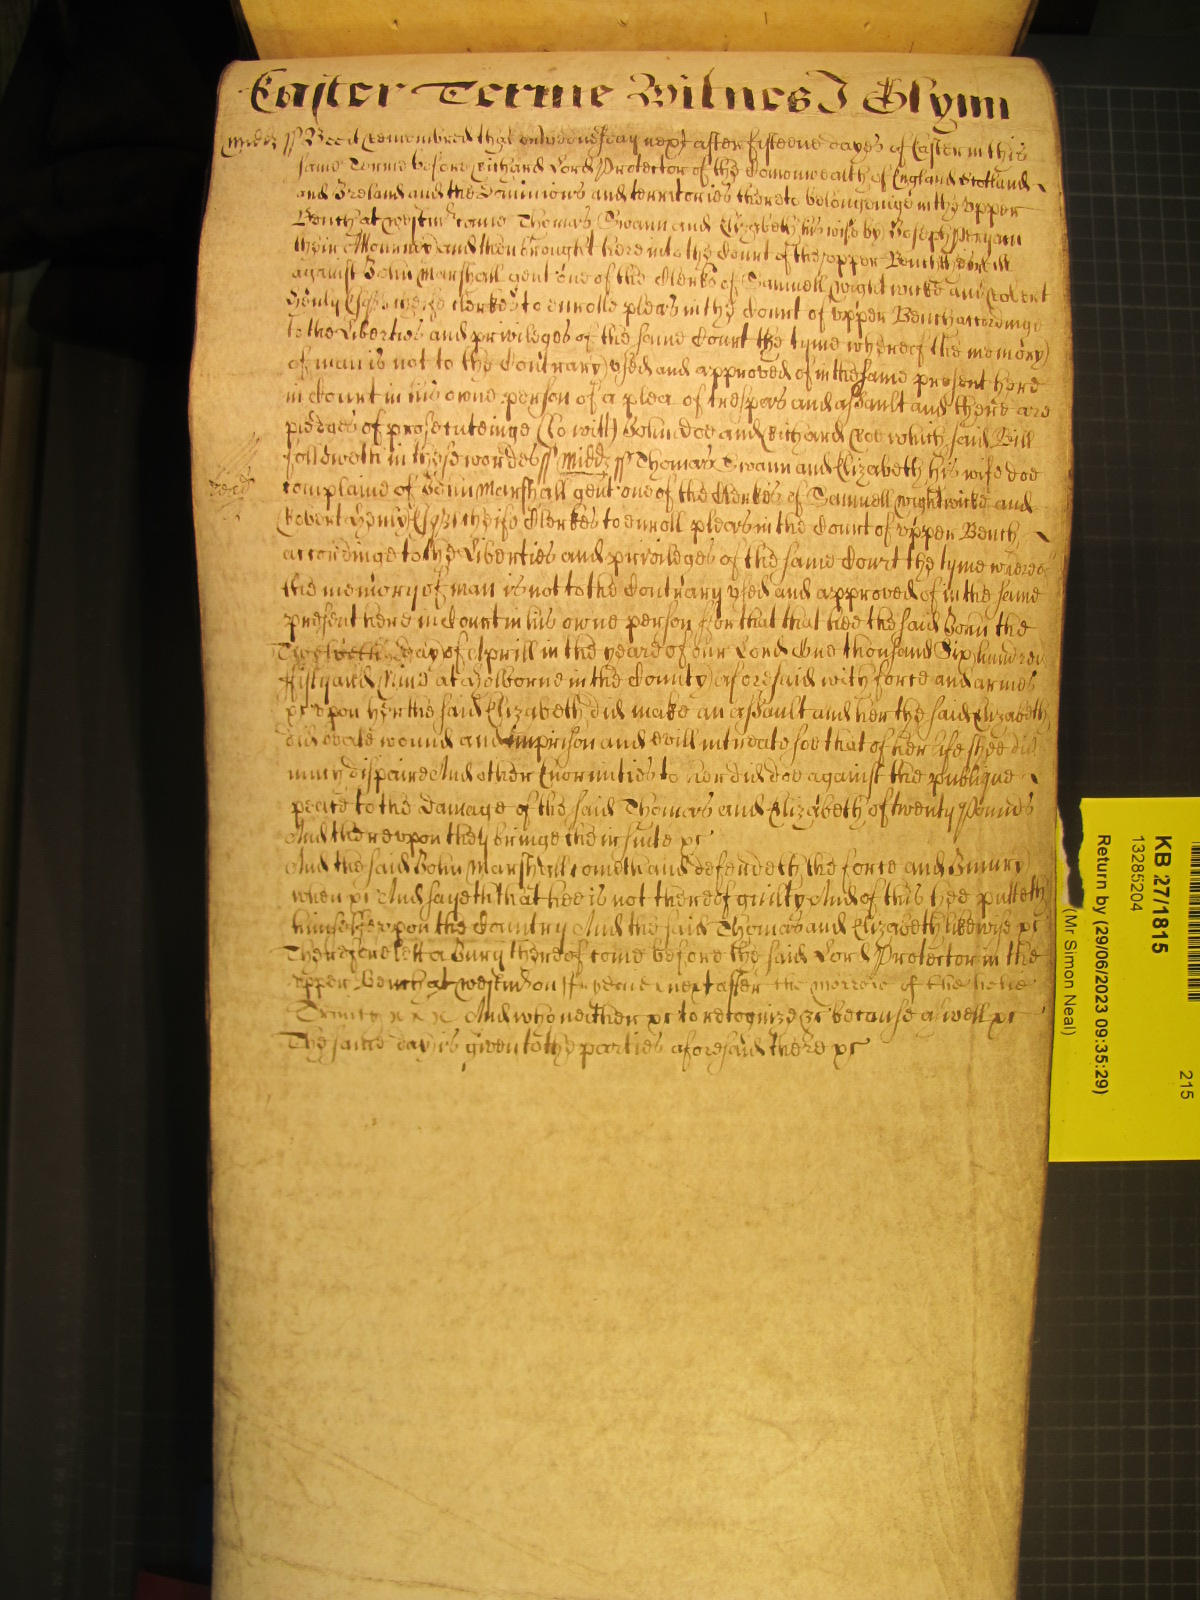 Easter Terme Witnes J Glynn
Midds ss Bee it Remembred that on wednesday next after fifteene dayes of Easter in this
same Terme before Richard Lord Protector of the Comonwealth of England Scotland
and Ireland and the Dominions and territories thereto belonginge in the upper
Bench at westmr came Thomas Swann and Elizabeth his wife by Joseph
their Attourney and then brought here into the Court of the upper Bench their Bill
against John Marshall gent one of the Clerks of Samuell Wightwicke and Robert
Henly Esqrs cheife clerkes to enrolle pleas in the Court of upper Bench accordinge
to the Liberties and priviledges of the same Court the tyme whereof the memory
of man is not to the Contrary used and approved of in the same present here
in Court in his owne person of a plea of trespas and assault and there are
pledges of prosecuteinge (to witt) John Doe and Richard Roe which said Bill
followeth in these wordes ss Midds ss Thomas Swann and Elizabeth his wife doe
complaine of John Marshall gent one of the Clerkes of Samuell Wightwicke and
Robert Henly Esqrs cheife Clerkes to enroll pleas in the Court of upper Bench
accordinge to the Liberties and priviledges of the same Court the tyme whereof
the memory of man is not to the Contrary used and approved of in the same
present here in Court in his owne person for that that hee the said John the
day of Aprill in the yeare of our Lord One thousand Six hundred
fifty and Nine at Holborne in the County aforesaid with force and armes
&c upon her the said Elizabeth did make an assault and her the said Elizabeth
did beate wound and imprison and evill intreate soe that of her life shee did
much dispaire And other Enormities to her did doe against the publique
peace to the damage of the said Thomas and Elizabeth of twenty Pounds
And thereupon they bringe their suite &c
And the said John Marshall cometh and defendeth the force and Iniury
when &c And sayeth that hee is not thereof guilty And of this hee putteth
himselfe upon the Country And the said Thomas and Elizabeth likewise &c
Therefore lett a Jury thereof come before the said Lord Protector in the
upper Bench at westmr on next after the morrow of the holie
Trinity And who neither &c to recognize &c because aswell &c
The same day is given to the parties aforesaid there &c
KB 27/1815
13285204
215
Return by (29/06/2023 09:35:29)
(Mr Simon Neal)